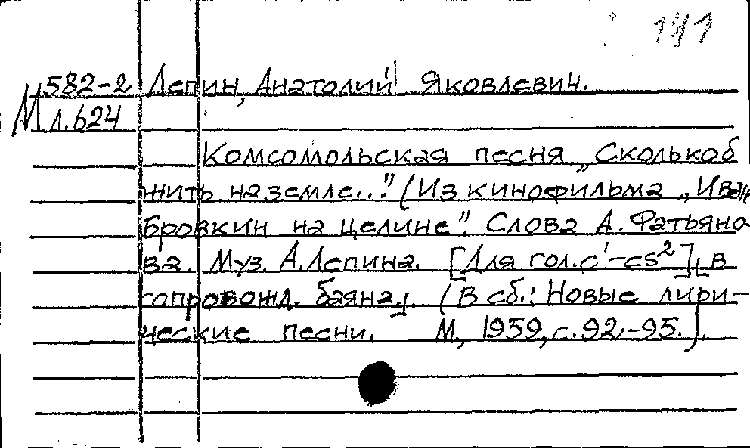 141
582-2 Лепин, Анатолий Яковлевич.
М л.624
Комсомольская песня „Сколько б
жить на земле..." (Из кинофильма „Иван
Бровкин на целине". Слова А. Фатьяно-
ва. Муз. А. Лепина. [Для гол. c¹-es² в
сопровожд. баяна]. (В сб.: Новые лири-
ческие песни. М., 1959, с. 92-95.).